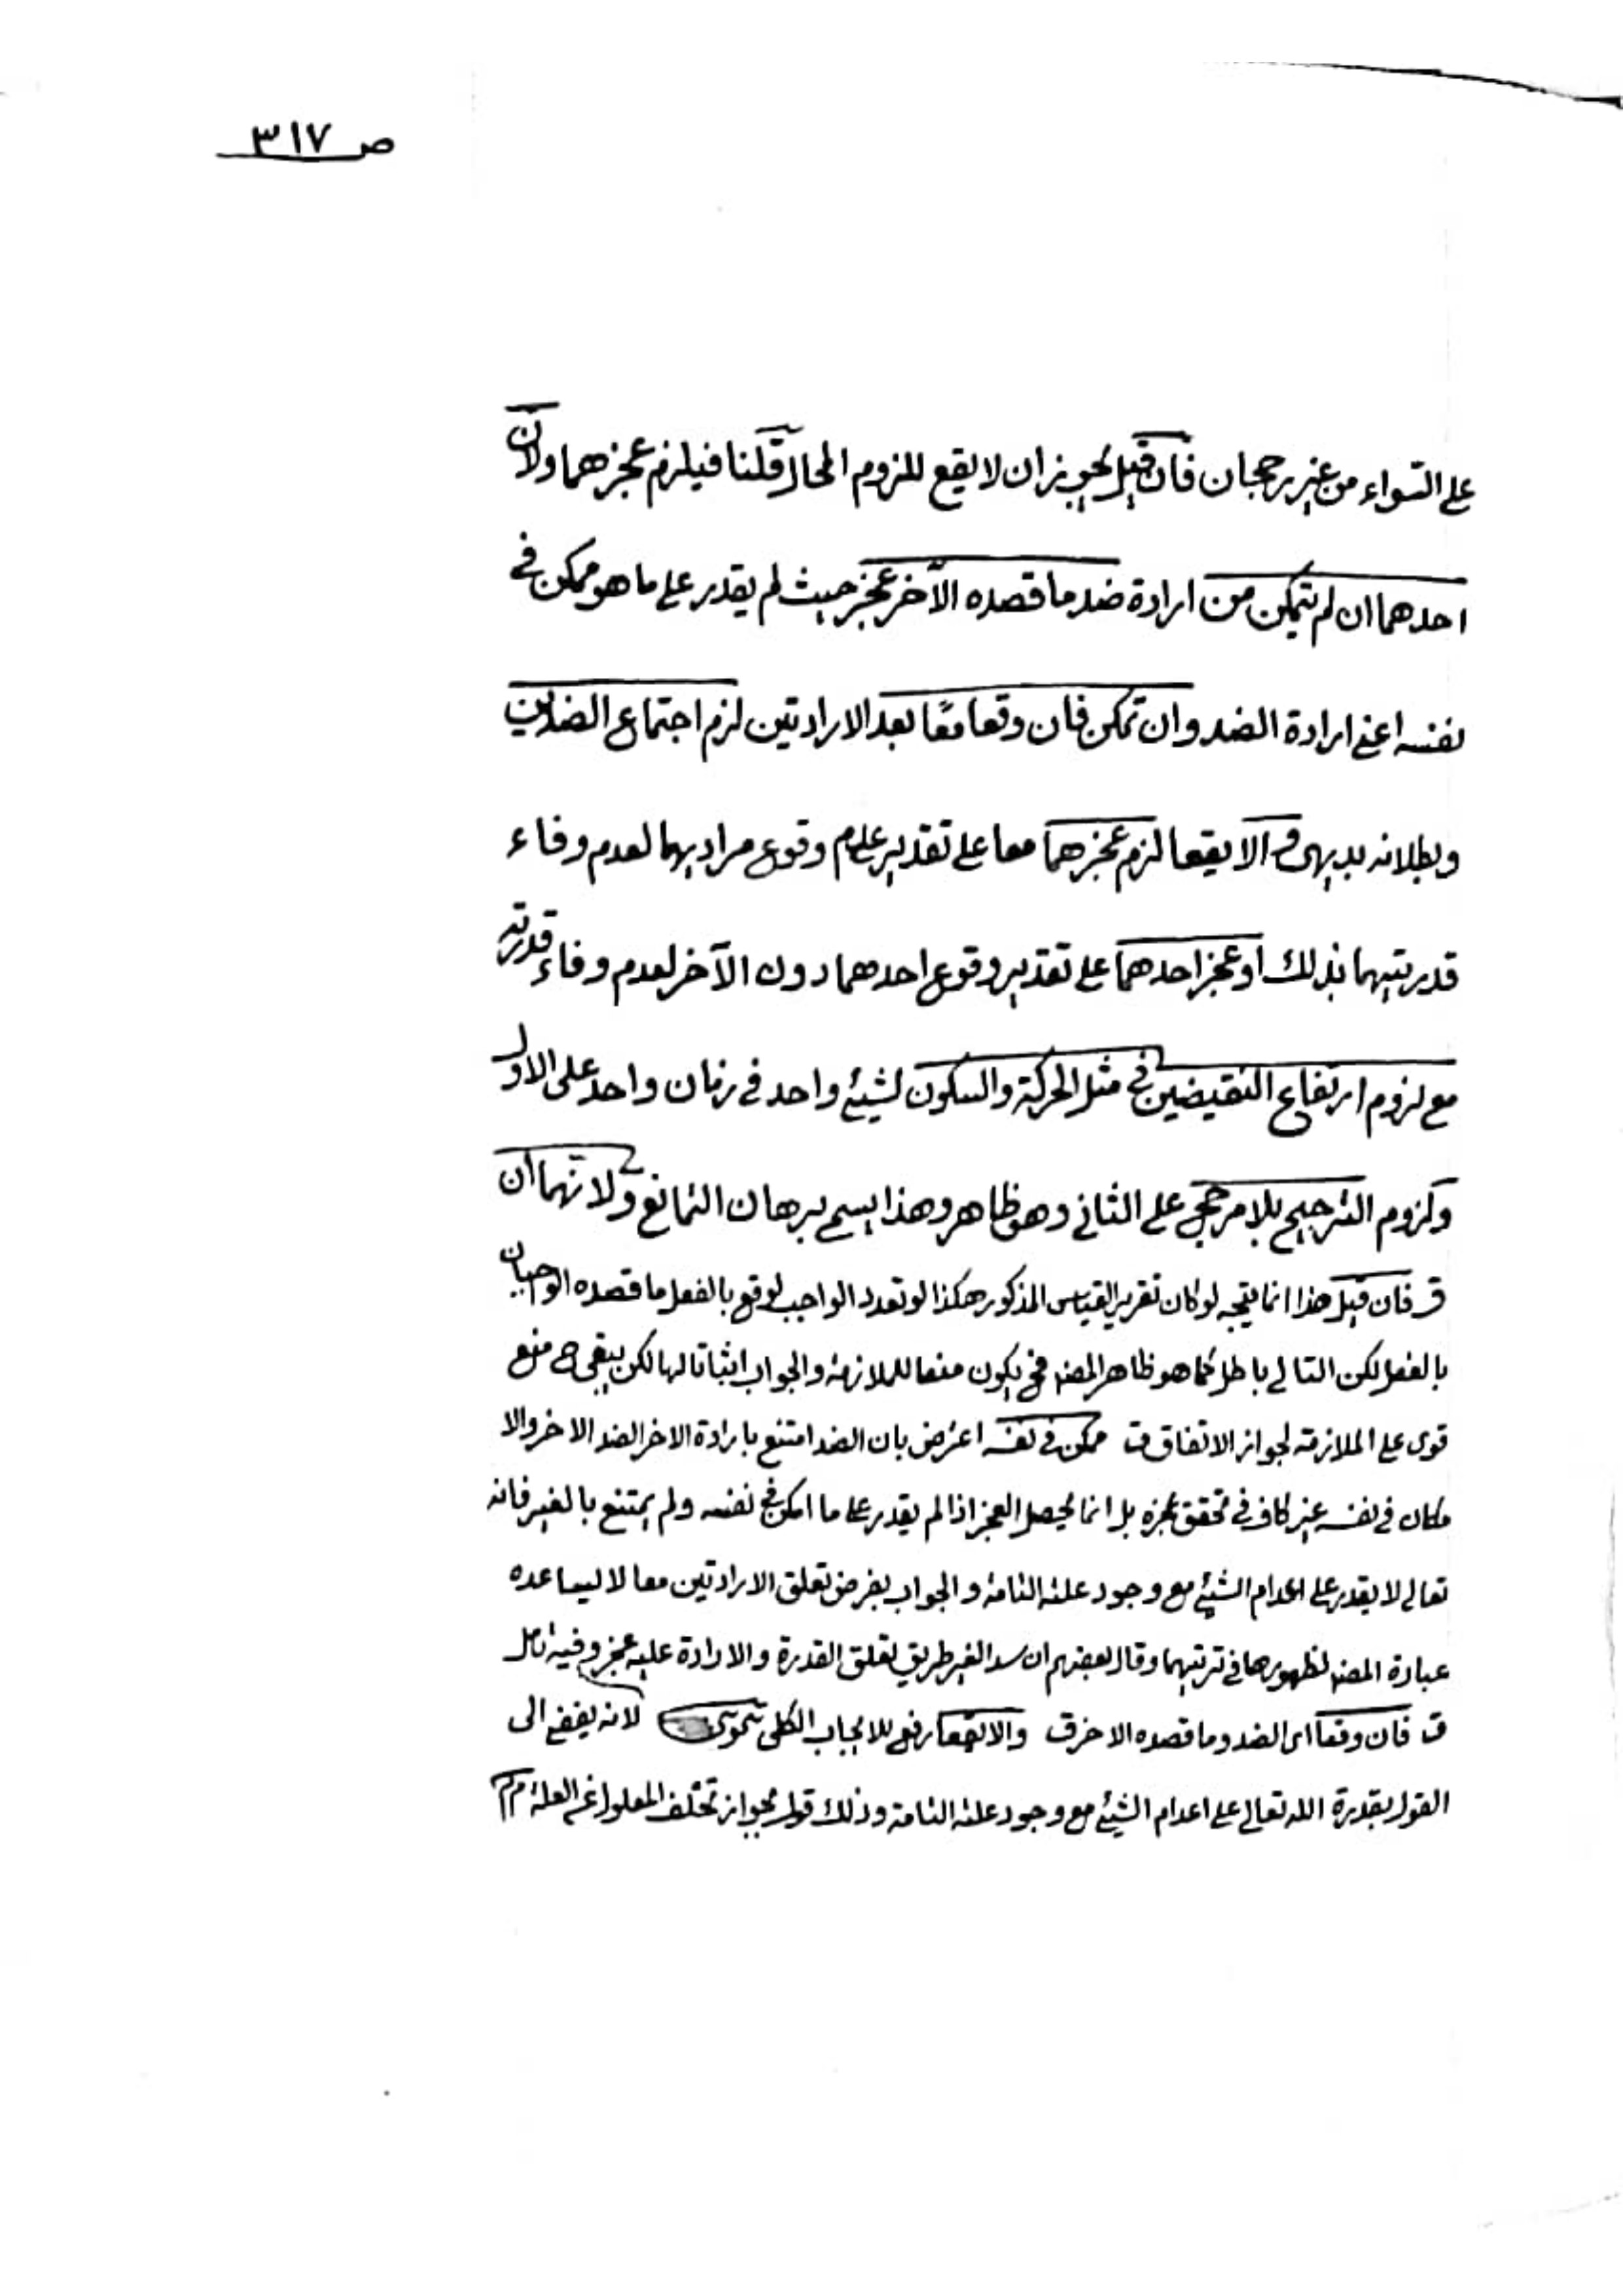 ص ٣١٧
على السواء من غير رجحان فان قيل يجوز ان لا يقع للزوم المحال قلنا فيلزم عجزهما ولان
احدهما ان لم يتمكن من ارادة ضد ما قصده الآخر عجز حيث لم يقدر على ما هو ممكن في
نفسه اعني ارادة الضد وان تمكن فان وقعا معًا بعد الارادتين لزم اجتماع الضدين
وبطلانه بديهي والا يقعا لزم عجزهما معا على تقدير عدم وقوع مراديهما لعدم وفاء
قدرتيهما بذلك او عجز احدهما على تقدير وقوع احدهما دون الآخر لعدم وفاء قدرته
مع لزوم ارتفاع النقيضين في مثل الحركة والسكون لشيئ واحد في زمان واحد على الاول
ولزوم الترجيح بلا مرجح على الثاني وهو ظاهر وهذا يسمى برهان التمانع ولانهما ان
ق فان قيل هذا انما يتجه لو كان تقرير القياس المذكور هكذا لو تعدد الواجب لوقع بالفعل ما قصده الواجبان
بالفعل لكن التالي باطل كما هو ظاهر المصنف فح يكون منعا للملازمة والجواب اثباتا لها لكن يبقى ح منع
قوى على الملازمة لجواز الاتفاق ق ممكن في نفسه اعترض بان الضد امتنع بارادة الاخر الضد الاخر والا
مكان في نفسه غير كاف في تحقق عجزه بل انما يحصل العجز اذا لم يقدر على ما امكن في نفسه ولم يمتنع بالغير فانه
تعالى لا يقدر على اعدام الشيئ مع وجود علته التامة والجواب بفرض تعلق الارادتين معا لا يساعده
عبارة المصنف لظهورها في ترتيبهما وقال بعضهم ان سد الغير طريق تعلق القدرة والارادة عليه عجز وفيه تامل
ق فان وقعا اى الضد وما قصده الاخر ق والا يقعا رفع للايجاب الكلى لانه يفضى الى
القول بقدرة الله تعالى على اعدام الشيئ مع وجود علته التامة وذلك قول بجواز تخلف المعلول عن العلة